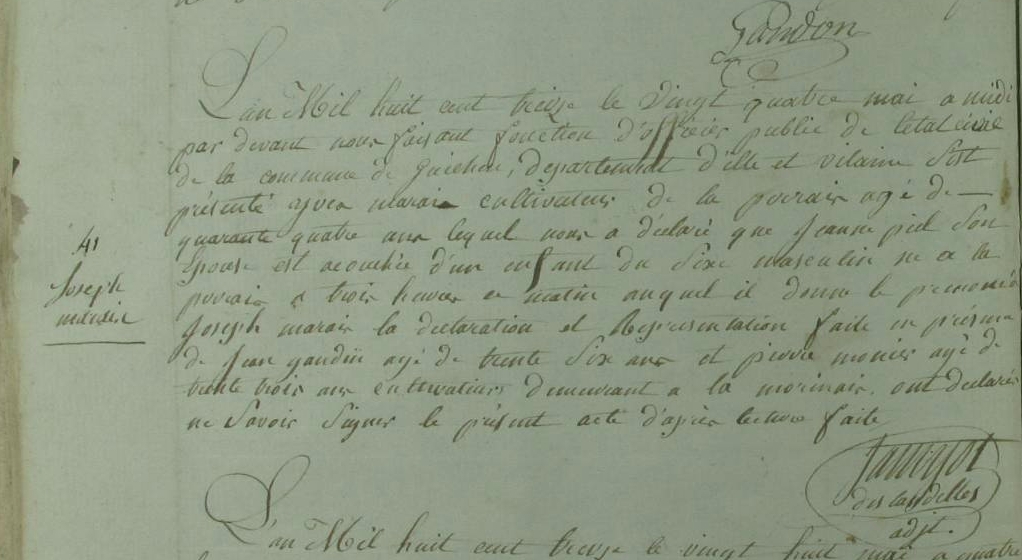 Gandon
L'an Mil huit cent treize le vingt quatre mai a midi
par devant nous faisant fonction d'officier public de l'etat civil
de la commune de Guichen, departement d'ille et vilaine s'est
présenté yves marais cultivateur de la porrais agé de —
quarante quatre ans lequel nous a déclaré que Jeanne piel son
Epouse est acouchée d'un enfant du sixe masculin né a la
porrais a trois heures ce matin auquel il donne le prenom
Joseph marais la declaration et Representation faite en présence
de Jean gandin agé de trente six ans et pierre monier agé de
trente trois ans cultivateurs demeurant a la morinais. ont declarés
ne savoir signer le présent acte d'après lecture faite
41
Joseph
des
adjt.
L'an Mil huit cent treize le vingt huit mai a quatre